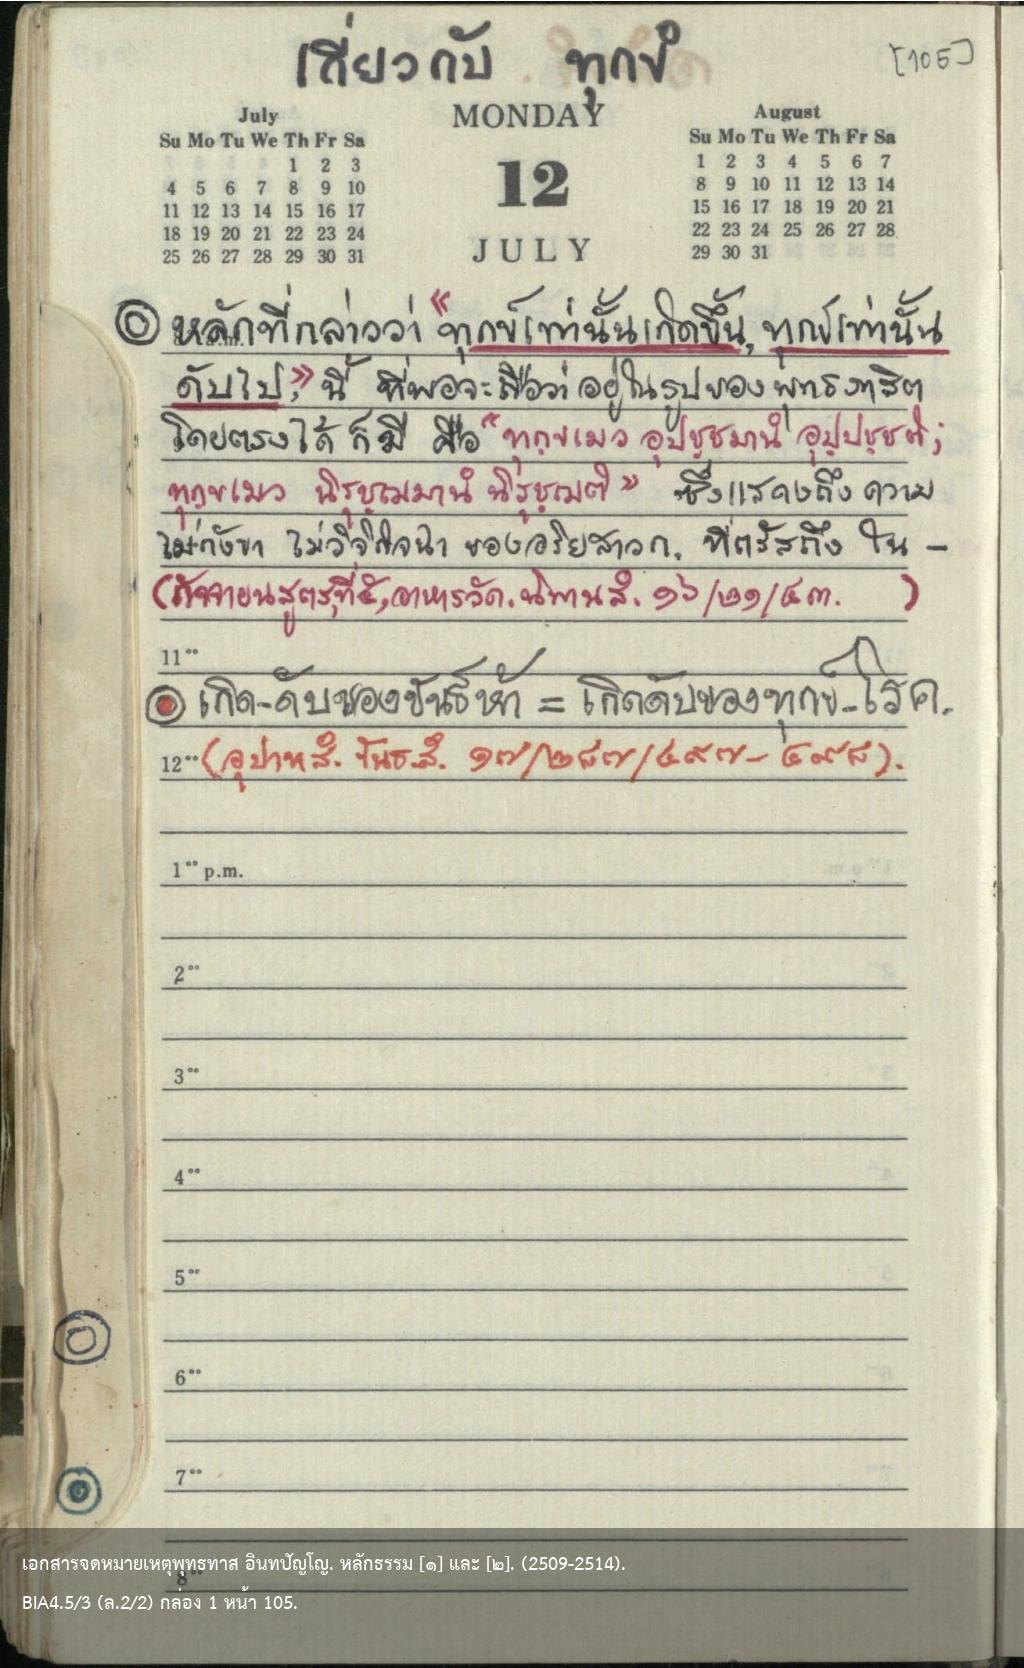 เกี่ยวกับ ทุกข์
[105]
July
Su Mo Tu We Th Fr Sa
1 2 3
4 5 6 7 8 9 10
11 12 13 14 15 16 17
18 19 20 21 22 23 24
25 26 27 28 29 30 31
MONDAY
12
JULY
August
Su Mo Tu We Th Fr Sa
1 2 3 4 5 6 7
8 9 10 11 12 13 14
15 16 17 18 19 20 21
22 23 24 25 26 27 28
29 30 31
หลักที่กล่าวว่า "ทุกข์เท่านั้นเกิดขึ้น, ทุกข์เท่านั้น
ดับไป," นี้ ที่พอจะถือว่า อยู่ในรูปของพุทธภาสิต
โดยตรงได้ ก็มี คือ "ทุกฺขเมว อุปฺปชฺชมานํ อุปฺปชฺชติ;
ทุกฺขเมว นิรุชฺฌมานํ นิรุชฺฌติ" ซึ่งแสดงถึง ความ
ไม่กังขา ไม่วิจิกิจฉา ของอริยสาวก. ที่ตรัสถึง ใน -
(กัจจายนสูตร,ที่๕,อาหารวัค. นิทานสํ. ๑๖/๒๑/๔๓. )
11⁰⁰
เกิด-ดับของขันธ์ห้า = เกิดดับของทุกข์-โรค.
12⁰⁰ (อุปาทสํ. ขันธ.สํ. ๑๗/๒๘๗/๔๙๗-๔๙๘).
1⁰⁰ p.m.
2⁰⁰
3⁰⁰
4⁰⁰
5⁰⁰
6⁰⁰
7⁰⁰
8⁰⁰
เอกสารจดหมายเหตุพุทธทาส อินทปัญโญ. หลักธรรม [๑] และ [๒]. (2509-2514).
BIA4.5/3 (ล.2/2) กล่อง 1 หน้า 105.